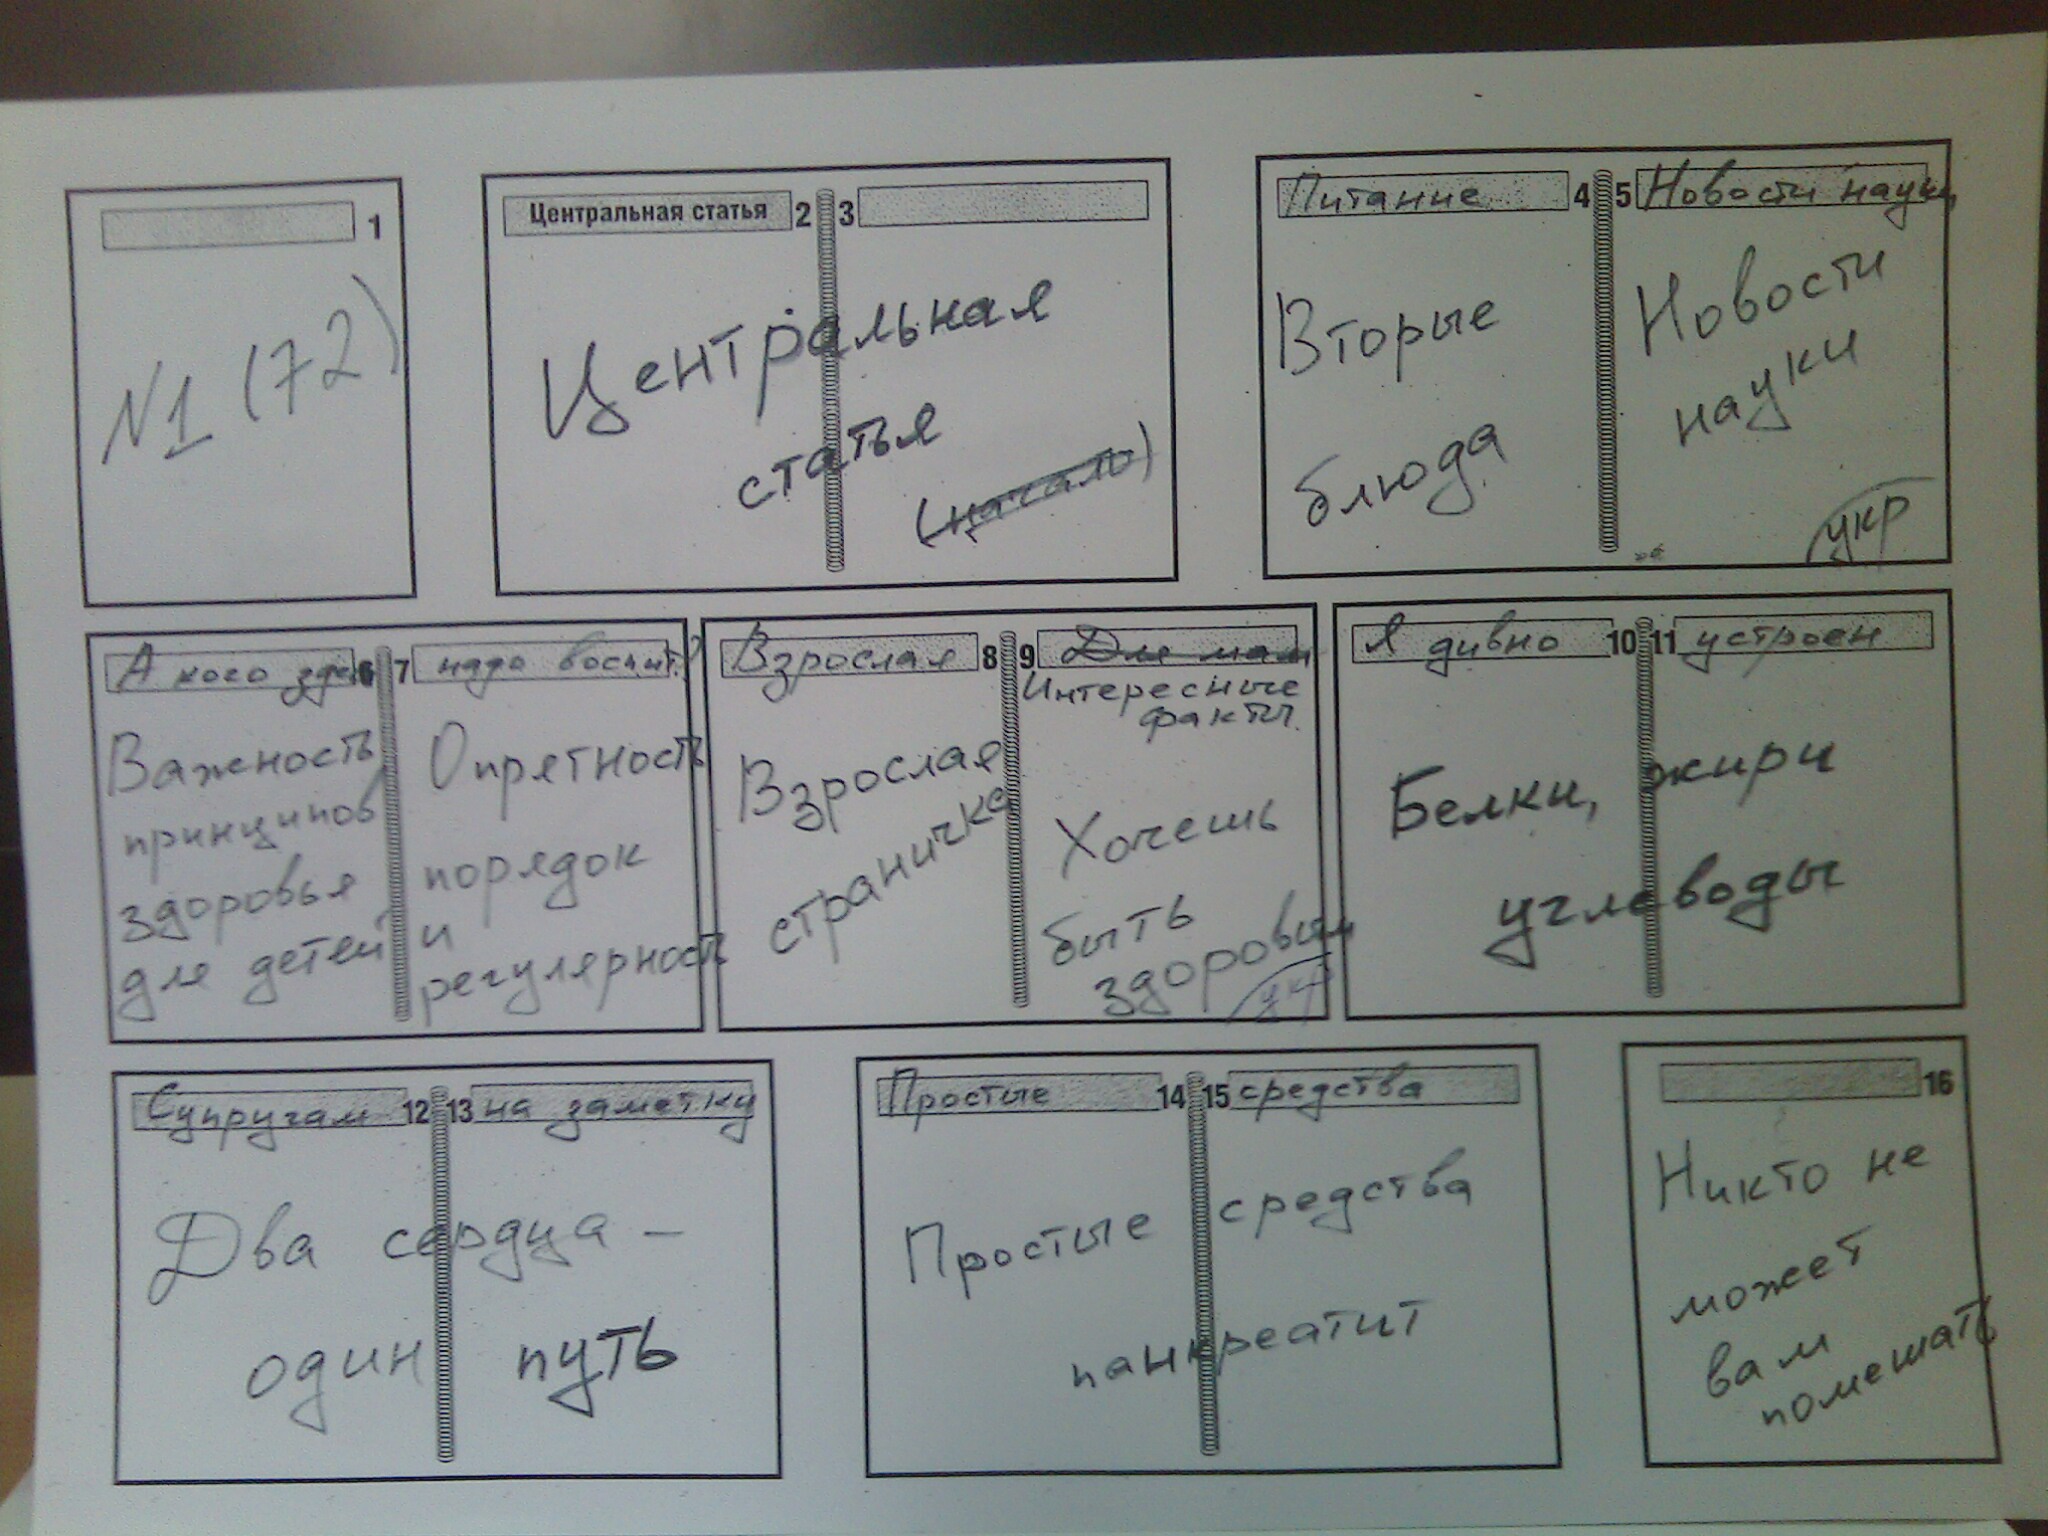 1
№1 (72)
Центральная статья 2
3
Центральная
статья
(начало)
Питание 4
5 Новости науки
Вторые
блюда
Новости
науки
укр
А кого здесь 6
7 надо воспит?
Важность
принципов
здоровья
для детей
Опрятность
порядок
и
регулярность
Взрослая 8
9 Для мам
Интересные
факты
Взрослая
страничка
Хочешь
быть
здоровым
укр
Я дивно 10
11 устроен
Белки, жиры
углеводы
Супругам 12
13 на заметку
Два сердца –
один путь
Простые 14
15 средства
Простые средства
панкреатит
16
Никто не
может
вам
помешать